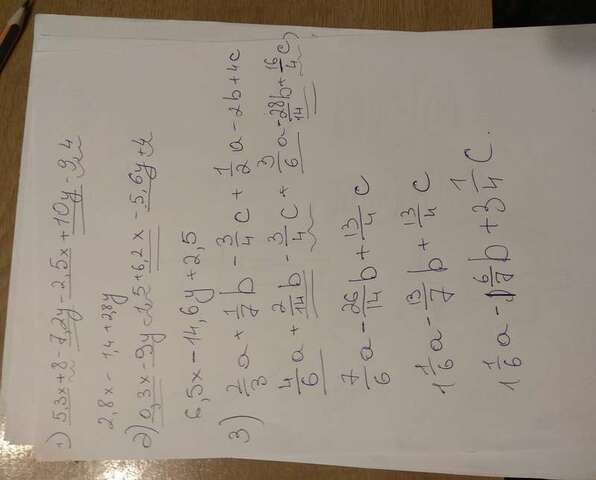 1) 5,3x + 8 - 7,2y - 2,5x + 10y - 9,4
2,8x - 1,4 + 2,8y
2) 0,3x - 9y - 1,5 + 6,2x - 5,6y + 4
6,5x - 14,6y + 2,5
3) 2/3 a + 1/7 b - 3/4 c + 1/2 a - 2b + 4c
4/6 a + 2/14 b - 3/4 c + 3/6 a - 28/14 b + 16/4 c
7/6 a - 26/14 b + 13/4 c
1 1/6 a - 13/7 b + 13/4 c
1 1/6 a - 1 6/7 b + 3 1/4 c.